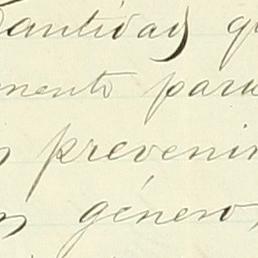 Cantidad q
mento para
prevenir
género,